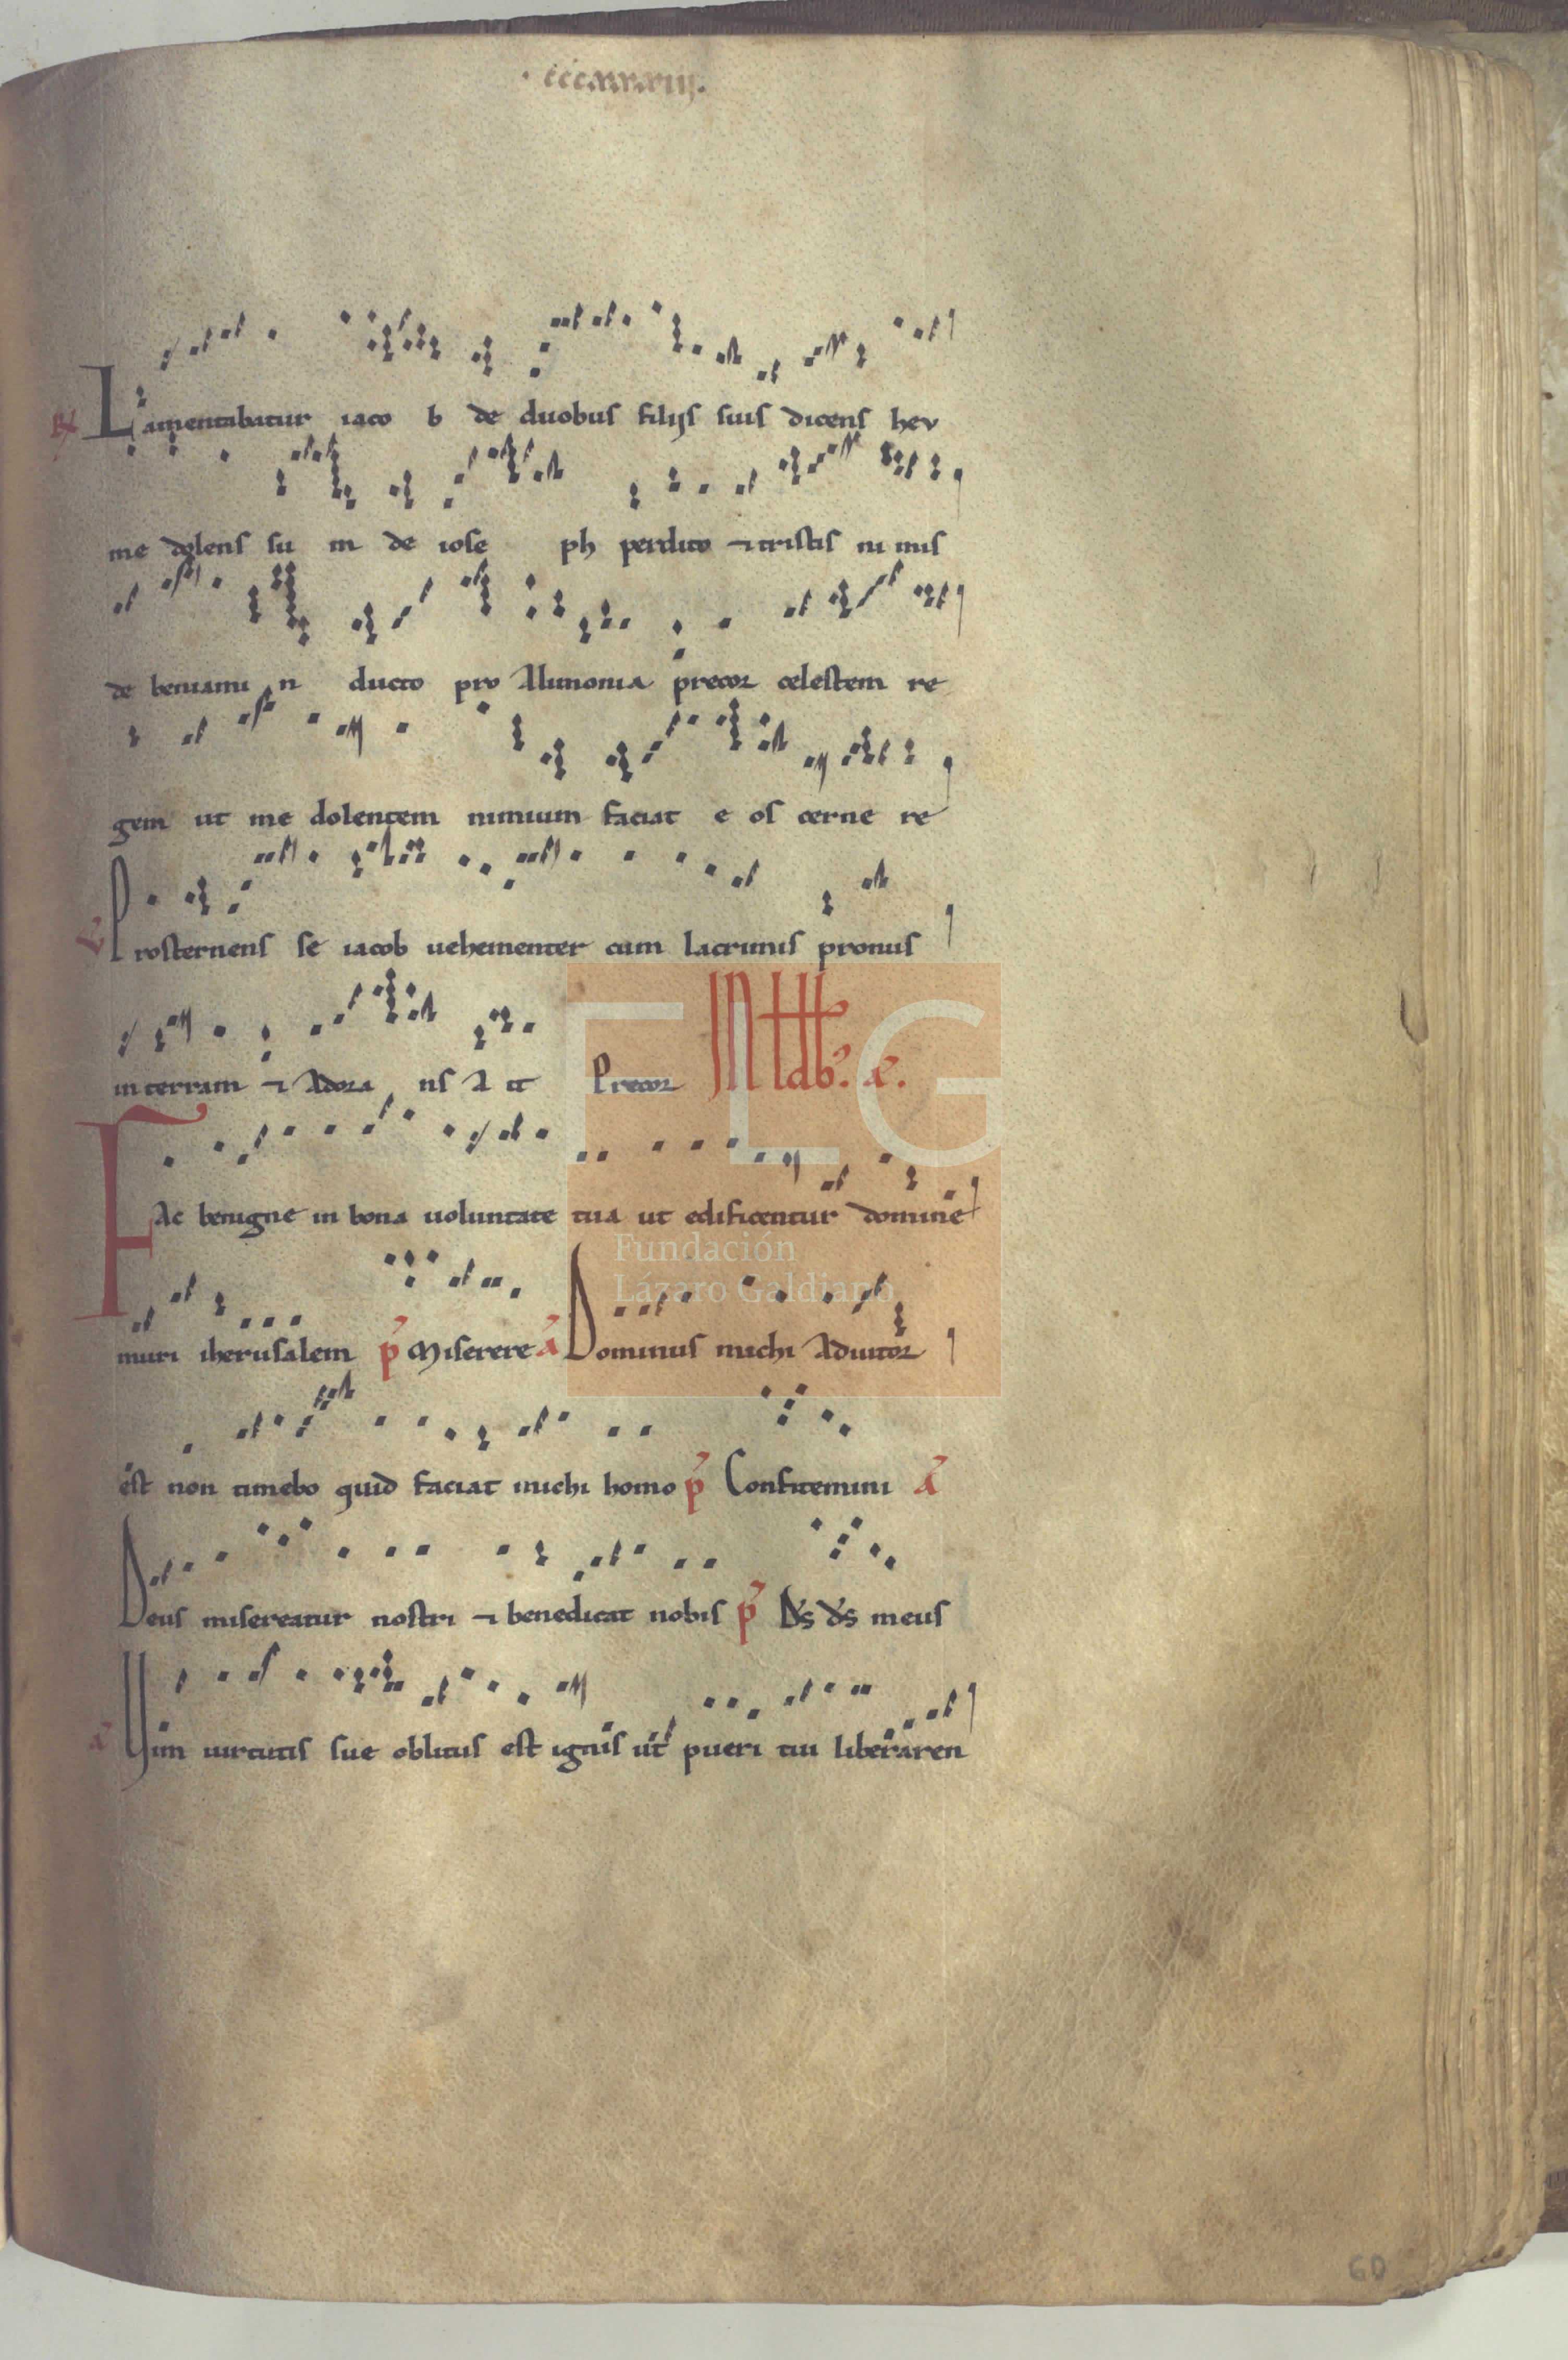 · cccxxxiij.
℟ Lamentabatur iaco b de duobus filijs suis dicens heu
me dolens su m de iose ph perdito ⁊ tristis ni mis
de beniami n ducto pro Alimonia precor celestem re
gem ut me dolentem nimium faciat e os cerne re
℣ Prosternens se iacob uehementer cum lacrimis pronus
in terram ⁊ Adora ns A it Precor
Fac benigne in bona uoluntate tua ut edificentur domine
muri iherusalem p̃ Miserere ã Dominus michi Adiutor
est non timebo quid faciat michi homo p̃ Confitemini ã
Deus misereatur nostri ⁊ benedicat nobis p̃ D̃s d̃s meus
ã Uim uirtutis sue oblitus est ignis ut pueri tui liberaren
FLG
Fundación
Lázaro Galdiano
60